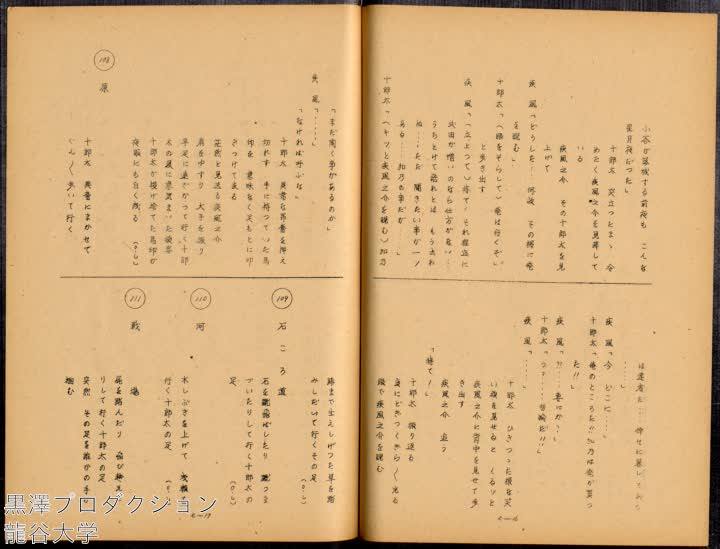 小谷が落城する前夜も　こんな
星月夜だつた」
十郎太　突立つたまゝ　冷
めたく疾風之介を見据して
いる
疾風之介　その十郎太を見
上げて
疾風「どうした……
を睨む」
十郎太「(眼をそらして)俺は行くぞ」
と歩き出す
疾風「(立上つて)待て！それ程迄に
武田が憎いのなら仕方が無い……
うちとけて語れとは　もう云わ
ぬ……ただ　聞きたい事が一ツ
ある……加乃の事だが……」
十郎太「(キツと疾風之介を睨む)加乃
は達者だ……倖せに暮しておる
……」
疾風「今　どこに……」
十郎太「俺のところだ!!加乃は俺が貰つ
た!!」
疾風「??……妻にか？」
疾風「……」
十郎太　ひきつつた様な笑
い顔を見せると　くるツと
疾風之介に背中を見せて歩
き出す
疾風之介　追う
「待て！」
十郎太　振り返る
眼で疾風之介を睨む
「まだ聞く事があるのか」
疾風「……」
「なければ呼ぶな」
十郎太　異常な昂奮を押え
切れず　手に持つていた馬
印を　意味なく足もとに叩
きつけて去る
茫然と見送る疾風之介
肩をゆすり　大手を振り
十郎太が投げ捨てた馬印が
夜眼にも白く残る　(O・L)
108　原
十郎太　興奮にまかせて
ぐんぐん歩いて行く
膝まで生えしげつた草を踏
みしだいて行くその足
(O・L)
109　石ころ道
石を蹴飛ばしたり　蹴つま
づいたりして行く十郎太の
足　(O・L)
110　河
水しぶきを上げて
行く十郎太の足　(O・L)
111　戦場
屍を踏んだり　飛び越え
りして行く十郎太の足
突然　その足を誰かの手
掴む
黒澤プロダクション
龍谷大学